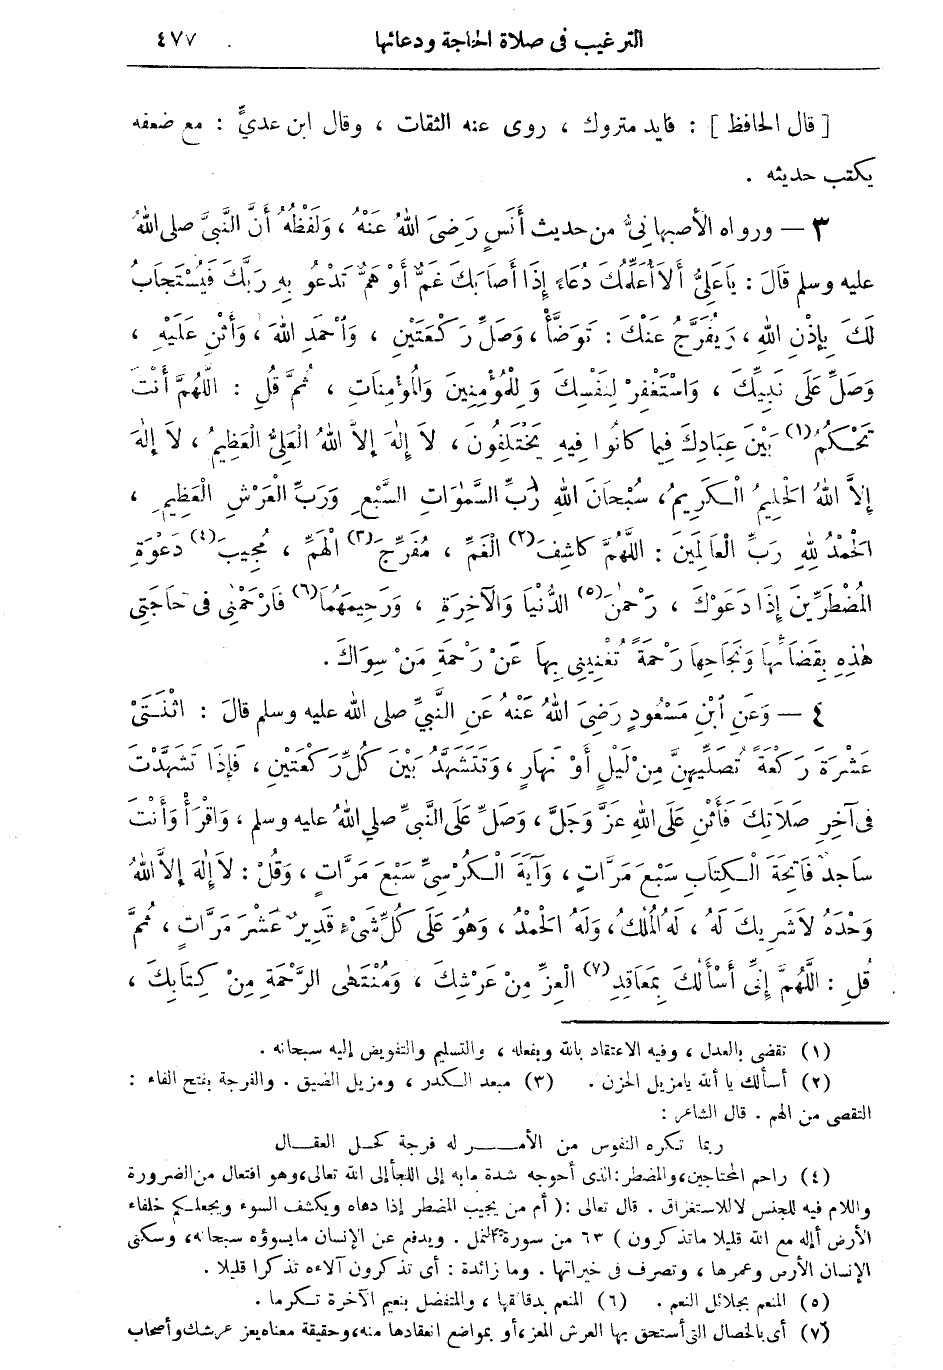 الترغيب فى صلاة الحاجة ودعائها ٤٧٧
[ قال الحافظ ] : فايد متروك ، روى عنه الثقات ، وقال ابن عدىٍّ : مع ضعفه
يكتب حديثه .
٣ — ورواه الأصبهانىُّ من حديث أَنَسٍ رَضِىَ اللهُ عَنْهُ ، وَلَفْظُهُ أَنَّ النَّبِىَّ صلى اللهُ
عليه وسلم قَالَ : يَاعَلِىُّ أَلَا أُعَلِّمُكَ دُعَاءً إِذَا أَصَابَكَ غَمٌّ أَوْ هَمٌّ تَدْعُو بِهِ رَبَّكَ فَيُسْتَجَابُ
لَكَ بِإِذْنِ اللهِ ، وَيُفَرَّجُ عَنْكَ : تَوَضَّأْ ، وَصَلِّ رَكْعَتَيْنِ ، وَٱحْمَدِ اللهَ ، وَأَثْنِ عَلَيْهِ ،
وَصَلِّ عَلَى نَبِيِّكَ ، وَاسْتَغْفِرْ لِنَفْسِكَ وَلِلْمُؤْمِنِينَ وَالْمُؤْمِنَاتِ ، ثُمَّ قُلِ : اللَّهُمَّ أَنْتَ
تَحْكُمُ(١) بَيْنَ عِبَادِكَ فِيمَا كَانُوا فِيهِ يَخْتَلِفُونَ ، لَا إِلٰهَ إِلَّا اللهُ الْعَلِىُّ الْعَظِيمُ ، لَا إِلٰهَ
إِلَّا اللهُ الْحَلِيمُ الْكَرِيمُ ، سُبْحَانَ اللهِ رَبِّ السَّمٰوَاتِ السَّبْعِ وَرَبِّ الْعَرْشِ الْعَظِيمِ ،
الْحَمْدُ لِلهِ رَبِّ الْعَالَمِينَ : اللَّهُمَّ كَاشِفَ(٢) الْغَمِّ ، مُفَرِّجَ(٣) الْهَمِّ ، مُجِيبَ(٤) دَعْوَةِ
الْمُضْطَرِّينَ إِذَا دَعَوْكَ ، رَحْمٰنَ(٥) الدُّنْيَا وَالْآخِرَةِ ، وَرَحِيمَهُمَا(٦) فَارْحَمْنِى فى حَاجَتِى
هٰذِهِ بِقَضَائِهَا وَنَجَاحِهَا رَحْمَةً تُغْنِينِى بِهَا عَنْ رَحْمَةِ مَنْ سِوَاكَ .
٤ — وَعَنِ ٱبْنِ مَسْعُودٍ رَضِىَ اللهُ عَنْهُ عَنِ النَّبِىِّ صلى الله عليه وسلم قَالَ : اثْنَتَىْ
عَشْرَةَ رَكْعَةً تُصَلِّيهِنَّ مِنْ لَيْلٍ أَوْ نَهَارٍ ، وَتَتَشَهَّدُ بَيْنَ كُلِّ رَكْعَتَيْنِ ، فَإِذَا تَشَهَّدْتَ
فى آخِرِ صَلَاتِكَ فَأَثْنِ عَلَى اللهِ عَزَّ وَجَلَّ ، وَصَلِّ عَلَى النَّبِىِّ صلى اللهُ عليه وسلم ، وَاقْرَأْ وَأَنْتَ
سَاجِدٌ فَاتِحَةَ الْكِتَابِ سَبْعَ مَرَّاتٍ ، وَآيَةَ الْكُرْسِىِّ سَبْعَ مَرَّاتٍ ، وَقُلْ : لَا إِلٰهَ إِلَّا اللهُ
وَحْدَهُ لَا شَرِيكَ لَهُ ، لَهُ الْمُلْكُ ، وَلَهُ الْحَمْدُ ، وَهُوَ عَلَى كُلِّ شَىْءٍ قَدِيرٌ عَشْرَ مَرَّاتٍ ، ثُمَّ
قُلِ : اللَّهُمَّ إِنِّى أَسْأَلُكَ بِمَعَاقِدِ(٧) الْعِزِّ مِنْ عَرْشِكَ ، وَمُنْتَهَى الرَّحْمَةِ مِنْ كِتَابِكَ ،
(١) تقضى بالعدل ، وفيه الاعتقاد بالله وبفعله ، والتسليم والتفويض إليه سبحانه .
(٢) أسألك يا ألله يامزيل الحزن . (٣) مبعد الكدر ، ومزيل الضيق . والفرجة بفتح الفاء :
التقصى من الهم . قال الشاعر :
ربما تكره النفوس من الأمـــر له فرجة كحل العقال
(٤) راحم المحتاجين، والمضطر : الذى أحوجه شدة مابه إلى اللجأ إلى الله تعالى، وهو افتعال من الضرورة
واللام فيه للجنس لا للاستغراق . قال تعالى : ( أم من يجيب المضطر إذا دعاه ويكشف السوء ويجعلكم خلفاء
الأرض أإله مع الله قليلا ماتذكرون ) ٦٣ من سورة النمل . ويدفع عن الإنسان مايسوؤه سبحانه، وسكنى
الإنسان الأرض وعمرها ، وتصرف فى خيراتها . وما زائدة : أى تذكرون آلاءه تذكرا قليلا .
(٥) المنعم بجلائل النعم . (٦) المنعم بدقائقها ، والمتفضل بنعيم الآخرة تكرما .
(٧) أى بالخصال التى أستحق بها العرش المعز، أو بمواضع انعقادها منه، وحقيقة معناه بعز عرشك وأصحاب